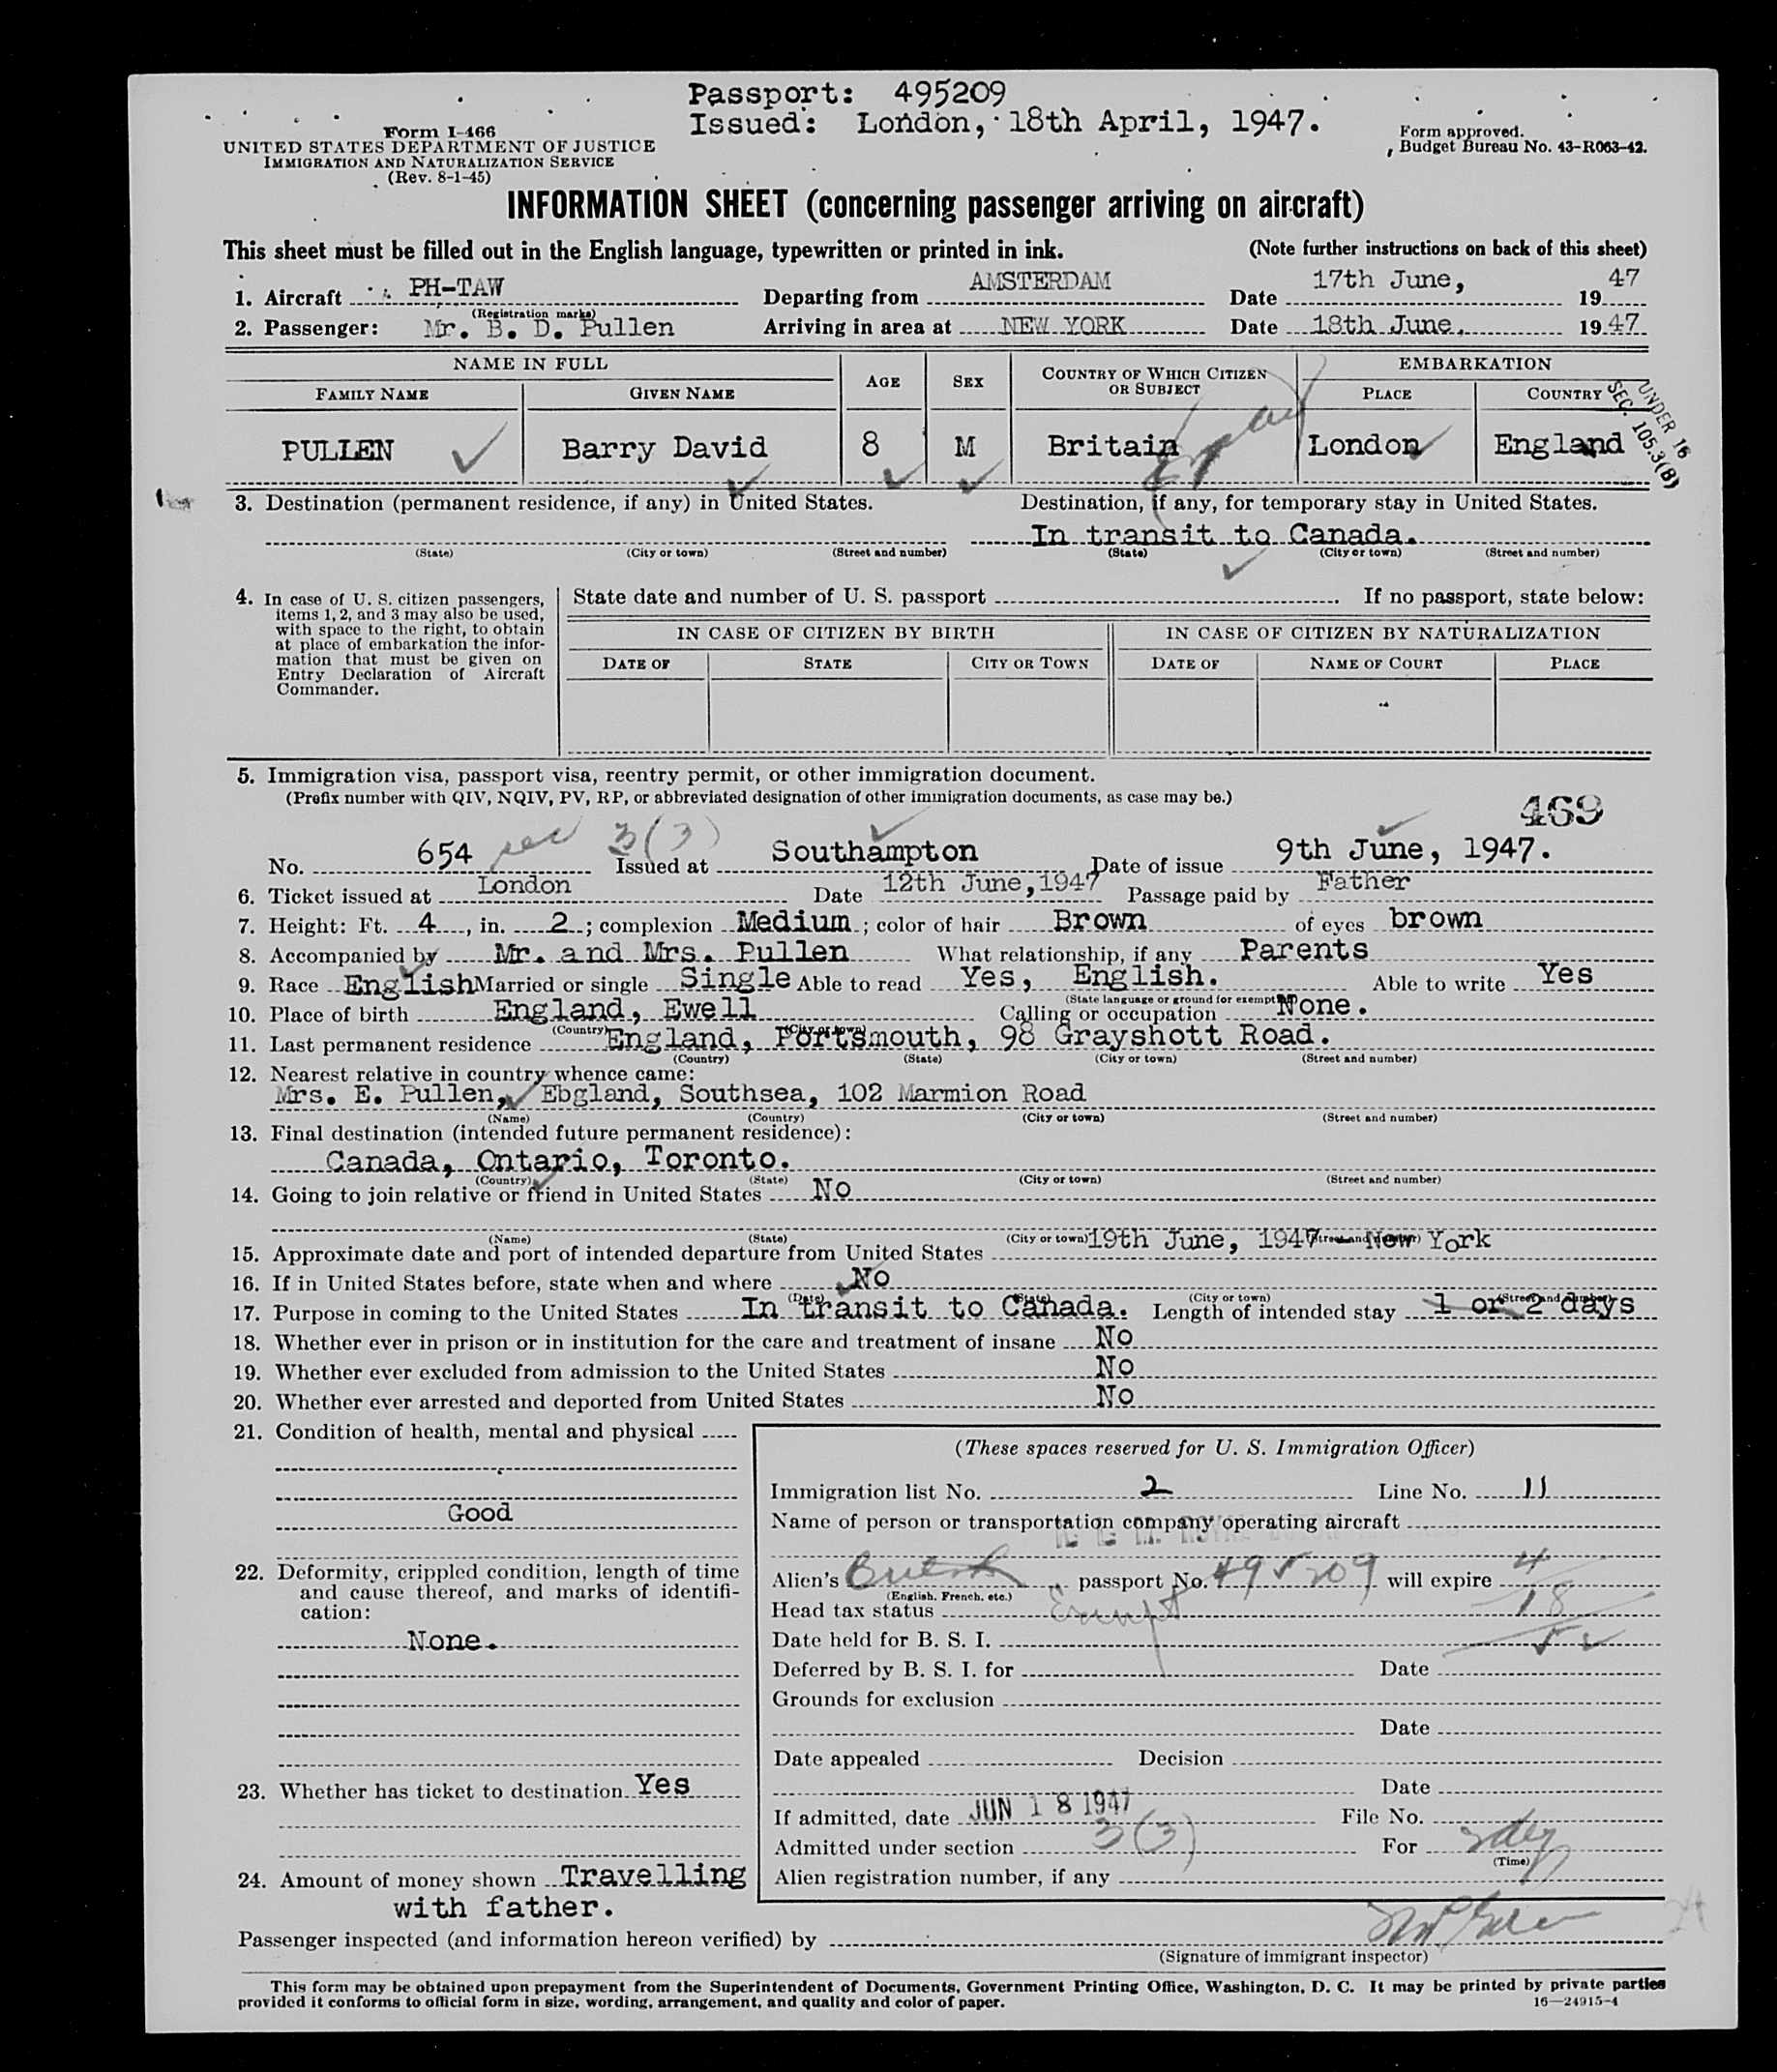 Passport: 495209
Issued: London, 18th April, 1947.
Form I-466
UNITED STATES DEPARTMENT OF JUSTICE
IMMIGRATION AND NATURALIZATION SERVICE
(Rev. 8-1-45)
Form approved.
Budget Bureau No. 43-R063-42.
INFORMATION SHEET (concerning passenger arriving on aircraft)
This sheet must be filled out in the English language, typewritten or printed in ink. (Note further instructions on back of this sheet)
1. Aircraft PH-TAW Departing from AMSTERDAM Date 17th June, 1947
(Registration marks)
2. Passenger: Mr. B. D. Pullen Arriving in area at NEW YORK Date 18th June, 1947
NAME IN FULL AGE SEX COUNTRY OF WHICH CITIZEN OR SUBJECT EMBARKATION
FAMILY NAME GIVEN NAME PLACE COUNTRY
UNDER 16
SEC. 105.3(B)
PULLEN Barry David 8 M Britain London England
3. Destination (permanent residence, if any) in United States. Destination, if any, for temporary stay in United States.
In transit to Canada.
(State) (City or town) (Street and number) (State) (City or town) (Street and number)
4. In case of U. S. citizen passengers, items 1, 2, and 3 may also be used, with space to the right, to obtain at place of embarkation the information that must be given on Entry Declaration of Aircraft Commander.
State date and number of U. S. passport If no passport, state below:
IN CASE OF CITIZEN BY BIRTH IN CASE OF CITIZEN BY NATURALIZATION
DATE OF STATE CITY OR TOWN DATE OF NAME OF COURT PLACE
5. Immigration visa, passport visa, reentry permit, or other immigration document.
(Prefix number with QIV, NQIV, PV, RP, or abbreviated designation of other immigration documents, as case may be.)
469
No. 654 sec 3(3) Issued at Southampton Date of issue 9th June, 1947.
6. Ticket issued at London Date 12th June,1947 Passage paid by Father
7. Height: Ft. 4, in. 2; complexion Medium; color of hair Brown of eyes brown
8. Accompanied by Mr. and Mrs. Pullen What relationship, if any Parents
9. Race English Married or single Single Able to read Yes, English. Able to write Yes
(State language or ground for exemption)
10. Place of birth England, Ewell Calling or occupation None.
(Country) (City or town)
11. Last permanent residence England, Portsmouth, 98 Grayshott Road.
(Country) (State) (City or town) (Street and number)
12. Nearest relative in country whence came:
Mrs. E. Pullen, Ebgland, Southsea, 102 Marmion Road
(Name) (Country) (City or town) (Street and number)
13. Final destination (intended future permanent residence):
Canada, Ontario, Toronto.
(Country) (State) (City or town) (Street and number)
14. Going to join relative or friend in United States No
(Name) (State) (City or town) (Street and number)
15. Approximate date and port of intended departure from United States 19th June, 1947 - New York
16. If in United States before, state when and where No
(Date) (State) (City or town) (Street and number)
17. Purpose in coming to the United States In transit to Canada. Length of intended stay 1 or 2 days
18. Whether ever in prison or in institution for the care and treatment of insane No
19. Whether ever excluded from admission to the United States No
20. Whether ever arrested and deported from United States No
21. Condition of health, mental and physical
Good
22. Deformity, crippled condition, length of time and cause thereof, and marks of identification:
None.
23. Whether has ticket to destination Yes
24. Amount of money shown Travelling
with father.
(These spaces reserved for U. S. Immigration Officer)
Immigration list No. 2 Line No. 11
Name of person or transportation company operating aircraft
K. L. M. ROYAL
Alien's British passport No. 495209 will expire 4/18/52
(English, French, etc.)
Head tax status Exempt
Date held for B. S. I.
Deferred by B. S. I. for Date
Grounds for exclusion
Date
Date appealed Decision
Date
If admitted, date JUN 18 1947 File No.
Admitted under section 3(3) For 2 day
(Time)
Alien registration number, if any
Passenger inspected (and information hereon verified) by
(Signature of immigrant inspector)
This form may be obtained upon prepayment from the Superintendent of Documents, Government Printing Office, Washington, D. C. It may be printed by private parties
provided it conforms to official form in size, wording, arrangement, and quality and color of paper. 16—24915-4